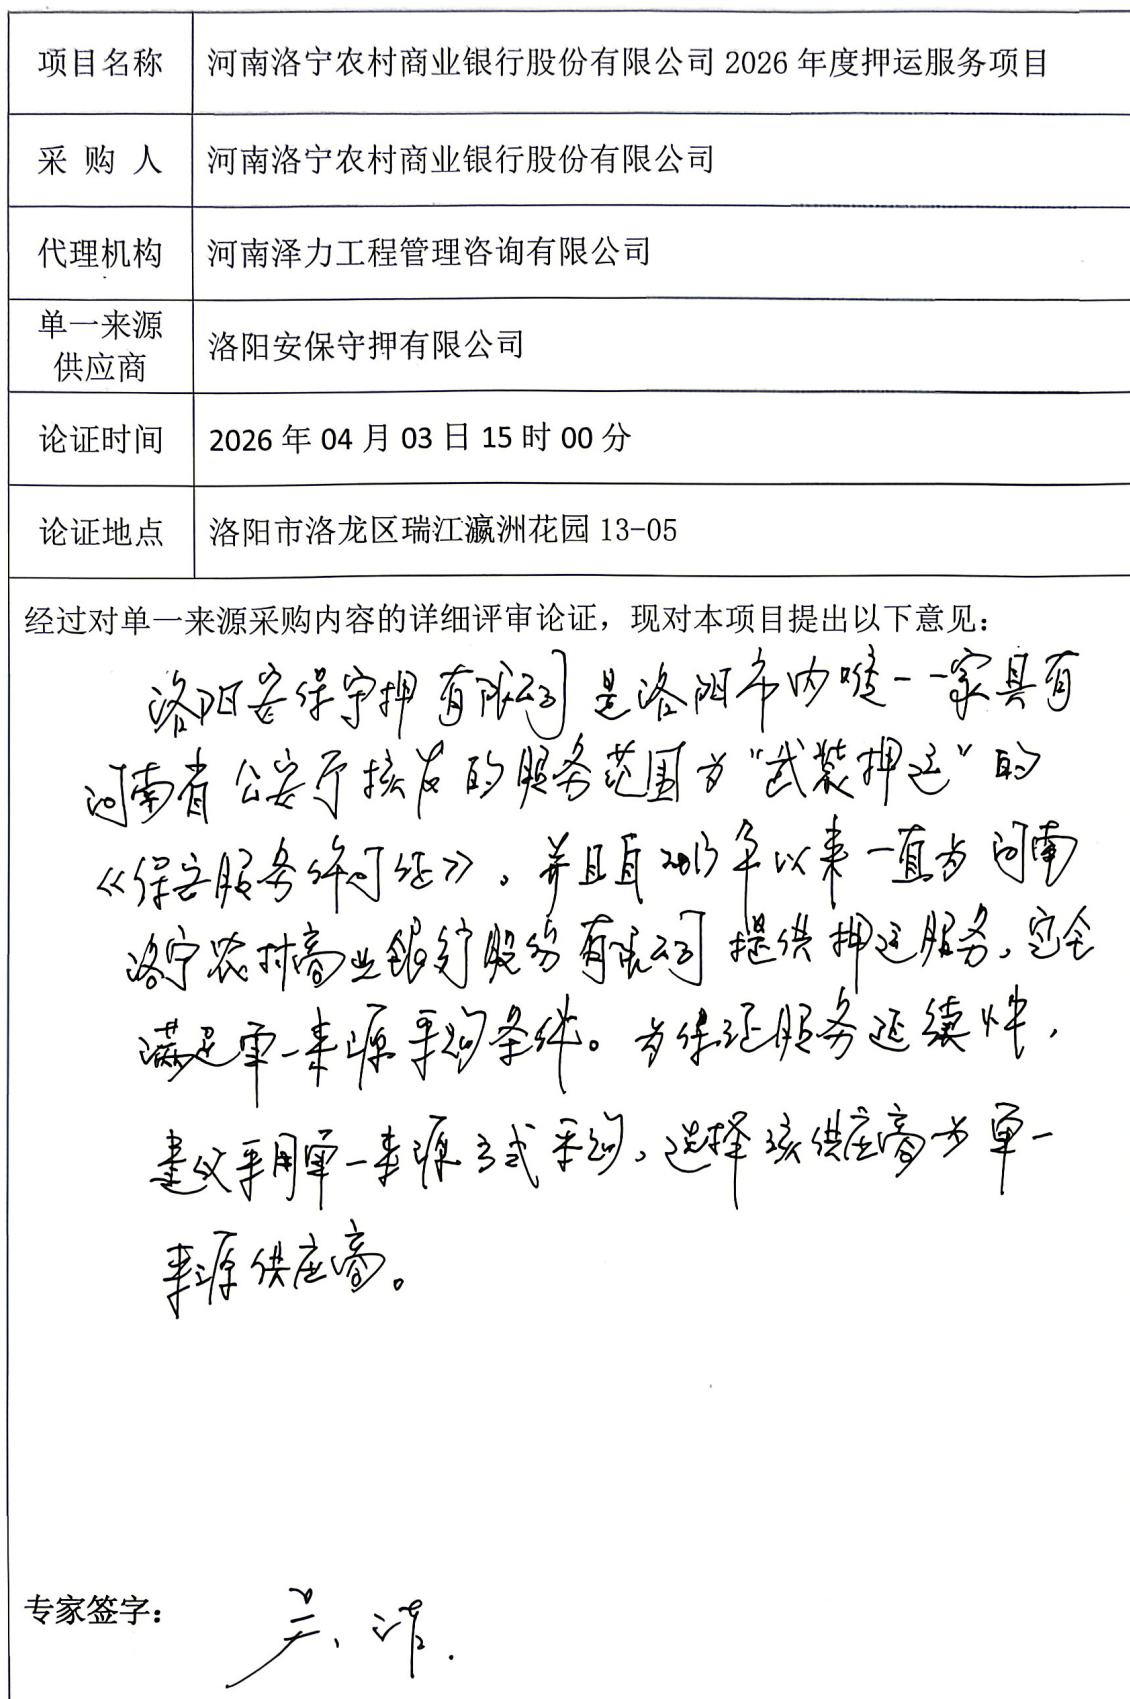 项目名称 河南洛宁农村商业银行股份有限公司 2026 年度押运服务项目
采 购 人 河南洛宁农村商业银行股份有限公司
代理机构 河南泽力工程管理咨询有限公司
单一来源
供应商 洛阳安保守押有限公司
论证时间 2026 年 04 月 03 日 15 时 00 分
论证地点 洛阳市洛龙区瑞江瀛洲花园 13-05
经过对单一来源采购内容的详细评审论证，现对本项目提出以下意见：
洛阳安保守押有限公司是洛阳市内唯一一家具有
河南省公安厅核发的服务范围为“武装押运”的
《保安服务许可证》，并且自 年以来一直为河南
洛宁农村商业银行股份有限公司提供押运服务，完全
满足单一来源采购条件。为保证服务延续性，
建议采用单一来源方式采购，选择该供应商为单一
来源供应商。
专家签字：